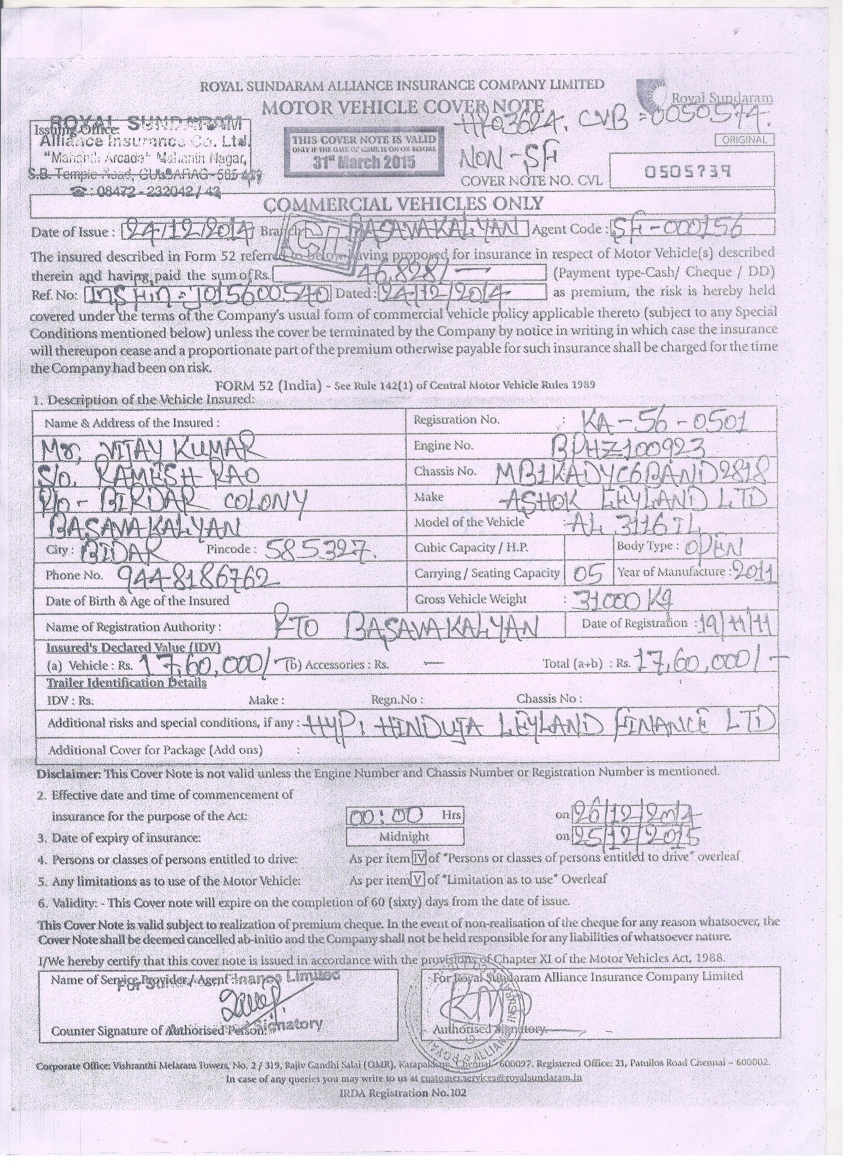 ROYAL SUNDARAM ALLIANCE INSURANCE COMPANY LIMITED
MOTOR VEHICLE COVER NOTE
Royal Sundaram
HY03624. CVB =0050574.
Issuing Office:
ROYAL SUNDARAM
Alliance Insurance Co. Ltd.
"Mahanth Arcade" Mahanth Nagar,
S.B. Temple Road, GULBARAG-585
☎:08472 - 232042 / 43
THIS COVER NOTE IS VALID
ONLY IF THE DATE OF ISSUE IS ON OR BEFORE
31st March 2015
NON-SF
ORIGINAL
COVER NOTE NO. CVL 0505739
COMMERCIAL VEHICLES ONLY
Date of Issue : 24/12/2014 Branch BASAVAKALYAN Agent Code : SF-000156
The insured described in Form 52 referred to below having proposed for insurance in respect of Motor Vehicle(s) described
therein and having paid the sum of Rs. 46,828/- (Payment type-Cash/ Cheque / DD)
Ref. No: Dated : 24/12/2014 as premium, the risk is hereby held
covered under the terms of the Company's usual form of commercial vehicle policy applicable thereto (subject to any Special
Conditions mentioned below) unless the cover be terminated by the Company by notice in writing in which case the insurance
will thereupon cease and a proportionate part of the premium otherwise payable for such insurance shall be charged for the time
the Company had been on risk.
FORM 52 (India) - See Rule 142(1) of Central Motor Vehicle Rules 1989
1. Description of the Vehicle Insured:
Name & Address of the Insured :
Mr, VIJAY KUMAR
S/o. RAMESH RAO
R/o - BIRDAR COLONY
BASAVAKALYAN
City : BIDAR Pincode : 585327.
Phone No. 944-8186762
Date of Birth & Age of the Insured
Registration No. : KA-56-0501
Engine No. BPHZ100923
Chassis No. MB1KADYC6BAND2818
Make ASHOK LEYLAND LTD
Model of the Vehicle AL 3116 IL
Cubic Capacity / H.P. Body Type : OPEN
Carrying / Seating Capacity 05 Year of Manufacture : 2011
Gross Vehicle Weight : 31000 Kg
Name of Registration Authority : RTO BASAVAKALYAN Date of Registration : 19/11/11
Insured's Declared Value (IDV)
(a) Vehicle : Rs. 17,60,000/- (b) Accessories : Rs. — Total (a+b) : Rs. 17,60,000/-
Trailer Identification Details
IDV : Rs. Make : Regn.No : Chassis No :
Additional risks and special conditions, if any : HYP: HINDUJA LEYLAND FINANCE LTD
Additional Cover for Package (Add ons) :
Disclaimer: This Cover Note is not valid unless the Engine Number and Chassis Number or Registration Number is mentioned.
2. Effective date and time of commencement of
insurance for the purpose of the Act: 00:00 Hrs on 26/12/2014
3. Date of expiry of insurance: Midnight on 25/12/2015
4. Persons or classes of persons entitled to drive: As per item IV of "Persons or classes of persons entitled to drive" overleaf
5. Any limitations as to use of the Motor Vehicle: As per item V of "Limitation as to use" Overleaf
6. Validity: - This Cover note will expire on the completion of 60 (sixty) days from the date of issue.
This Cover Note is valid subject to realization of premium cheque. In the event of non-realisation of the cheque for any reason whatsoever, the
Cover Note shall be deemed cancelled ab-initio and the Company shall not be held responsible for any liabilities of whatsoever nature.
I/We hereby certify that this cover note is issued in accordance with the provisions of Chapter XI of the Motor Vehicles Act, 1988.
Name of Service Provider / Agent
Finance Limited
Counter Signature of Authorised Person
Signatory
For Royal Sundaram Alliance Insurance Company Limited
Authorised Signatory
Corporate Office: Vishranthi Melaram Towers, No. 2 / 319, Rajiv Gandhi Salai (OMR), Karapakkam, Chennai - 600097. Registered Office: 21, Patullos Road Chennai - 600002.
In case of any queries you may write to us at customer.services@royalsundaram.in
IRDA Registration No. 102